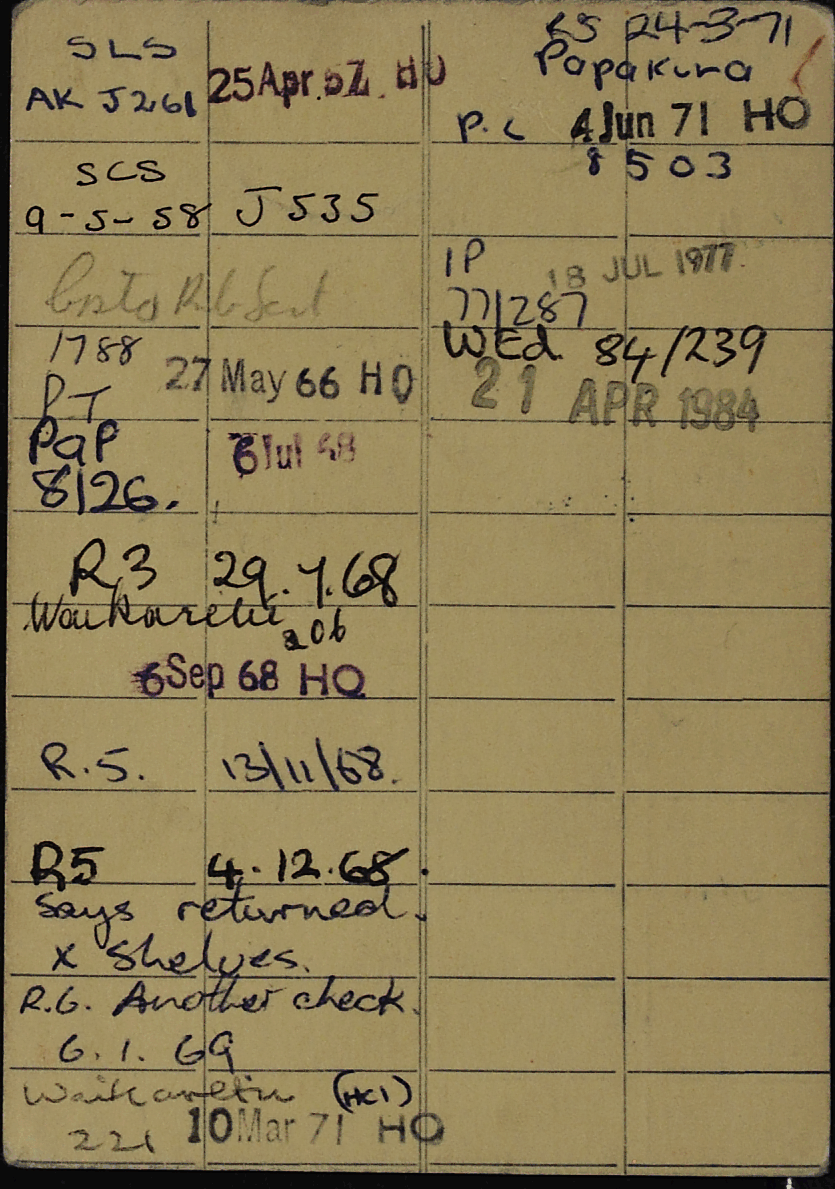 SLS
AK J261 25 Apr. 57. HO
SCS
9-5-58 J535
1788
PT 27 May 66 HO
Pap 6 Jul 68
8126.
R3 29.7.68
Waikaretu 206
6 Sep 68 HO
R.5. 13/11/68.
R5 4.12.68.
Says returned.
X Shelves.
R.6. Another check.
6.1.69
Waikaretu (HC1)
221 10 Mar 71 HO
24-3-71
Papakura
P.C 4 Jun 71 HO
8503
IP 18 JUL 1977
77/287
WEd. 84/239
21 APR 1984